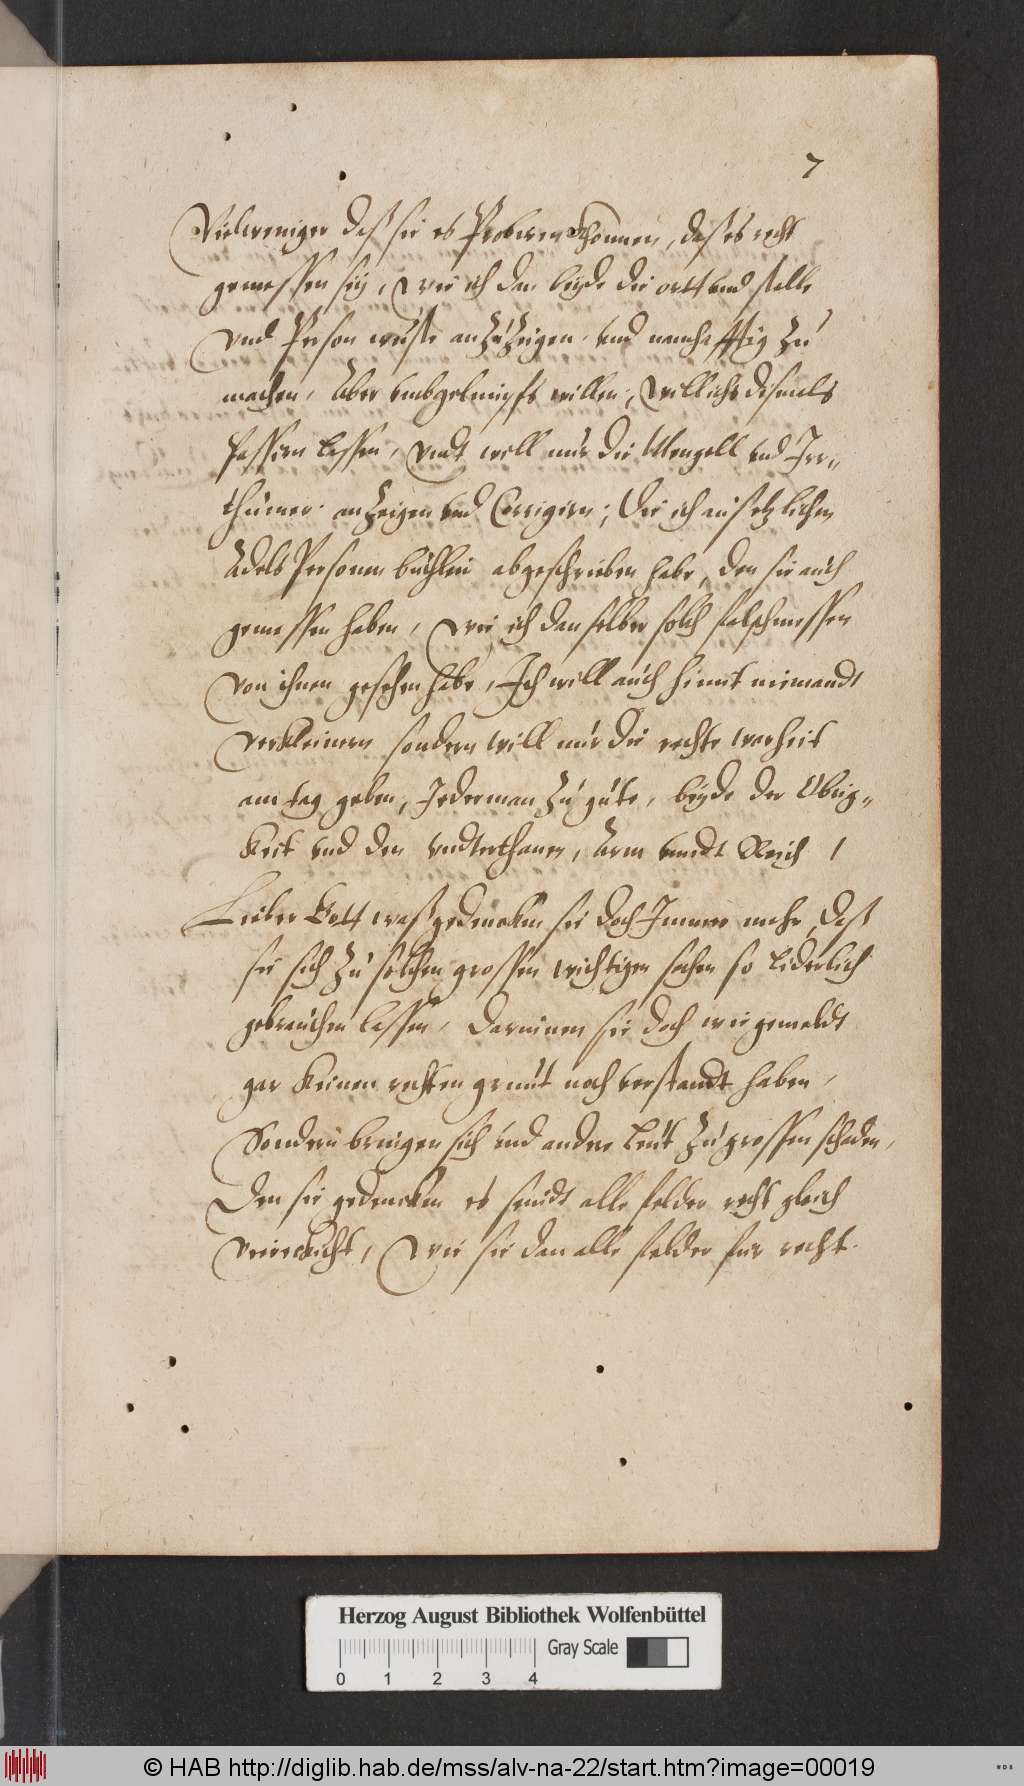 7
Vielweniger daß sie es Probiren Khönnen, daß es recht
gemessen sey, wie ich den beyde die ortt vnd stelle
vnd Person wuste anzuZeigen, vnd namhafftig zu
machen, Aber vmbgelimpffs willen, will ichs dismals
Passiren lassen, vndt will nur die Mengell vnd Irr„
thümer anzeigen vnd Corrigirn; die ich auß etzlichen
Adels Personen büchlein abgeschrieben habe, den sie auch
gemessen haben, wie ich dan selber solch falschmessen
von ihnen gesehen habe, Ich will auch himit niemandt
verkleinern sondern will nur die rechte warheit
am tag geben, Jederman zu gute, beyde der Obrig„
Keit vnd den vndterthanen, Arm vnndt Reich /
Lieber Gott waß gedencken sie doch Immer mehr, daß
sie sich zu solchen grossen wichtigen sachen so liderlich
gebrauchen lassen, darinnen sie doch wie gemeldt
gar Keinen rechten grunt noch verstandt haben,
Sondern bringen sich vnd andere leut zu grossen schaden,
Den sie gedencken es seindt alle felder recht gleich
viereckicht, Wie sie dan alle felder fur recht
Herzog August Bibliothek Wolfenbüttel
Gray Scale
0 1 2 3 4
© HAB http://diglib.hab.de/mss/alv-na-22/start.htm?image=00019